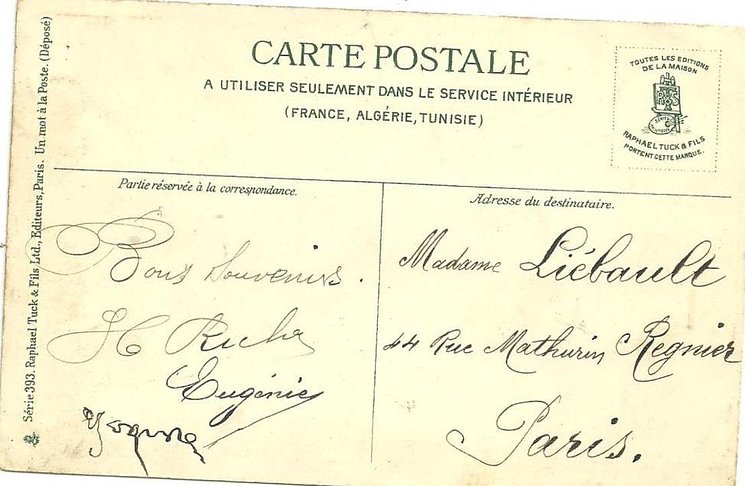 CARTE POSTALE
A UTILISER SEULEMENT DANS LE SERVICE INTÉRIEUR
(FRANCE, ALGÉRIE, TUNISIE)
TOUTES LES EDITIONS
DE LA MAISON
RAPHAEL TUCK & FILS
PORTENT CETTE MARQUE.
Série 393. Raphael Tuck & Fils Ltd., Editeurs, Paris. Un mot à la Poste. (Déposé)
Partie réservée à la correspondance.
Bons Souvenirs.
Eugénie
Adresse du destinataire.
Madame Liébault
44 Rue Mathurin Regnier
Paris.